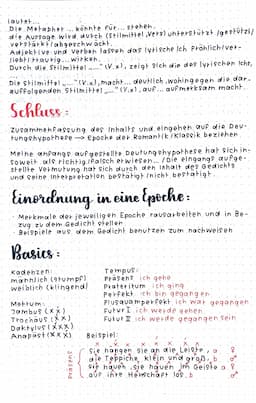 lautet...
Die Metapher ... könnte für ... stehen.
die Aussage wird durch (Stilmittel, Vers) unterstützt/gestützt/
verstärkt/abgeschwächt.
Adjektive und Verben lassen das lyrische Ich fröhlich/ver-
liebt/traurig... wirken.
Durch die Stilmittel „..." (V.x), zeigt sich die des lyrischen Ichs,
...
Die Stilmittel „..." (V.x), macht... deutlich, wohingegen die dar-
auffolgenden Stilmittel „..." (V.x), auf ... aufmerksam macht.
Schluss:
Zusammenfassung des Inhalts und eingehen auf die Deu-
tungshypothese → Epoche der Romantik/Klassik beziehen
Meine anfangs aufgestellte Deutungshypothese hat sich in-
soweit als richtig/falsch erwiesen... /Die eingangs aufge-
stellte Vermutung hat sich durch den Inhalt des Gedichts
und seine Interpretation bestätigt/nicht bestätigt.
Einordnung in eine Epoche:
· Merkmale der jeweiligen Epoche rausarbeiten und in Be-
zug zu dem Gedicht stellen
· Beispiele aus dem Gedicht benutzen zum nachweisen
Basics:
Kadenzen:
männlich (stumpf)
weiblich (klingend)
Metrum:
Jambus (xx́)
Trochäus (x́x)
Daktylus (x́xx)
Anapäst (xxx́)
Tempus:
Präsens ich gehe
Präteritum ich ging
Perfekt ich bin gegangen
Plusquamperfekt ich war gegangen
Futur I ich werde gehen
Futur II ich werde gegangen sein
Beispiel:
Präsens
sie hängen sie an die Leiste, a ♀
die Teppiche klein und groß, b ♂
sie hauen, sie hauen im Geiste a ♀
auf ihre Herrschaft los. b ♂